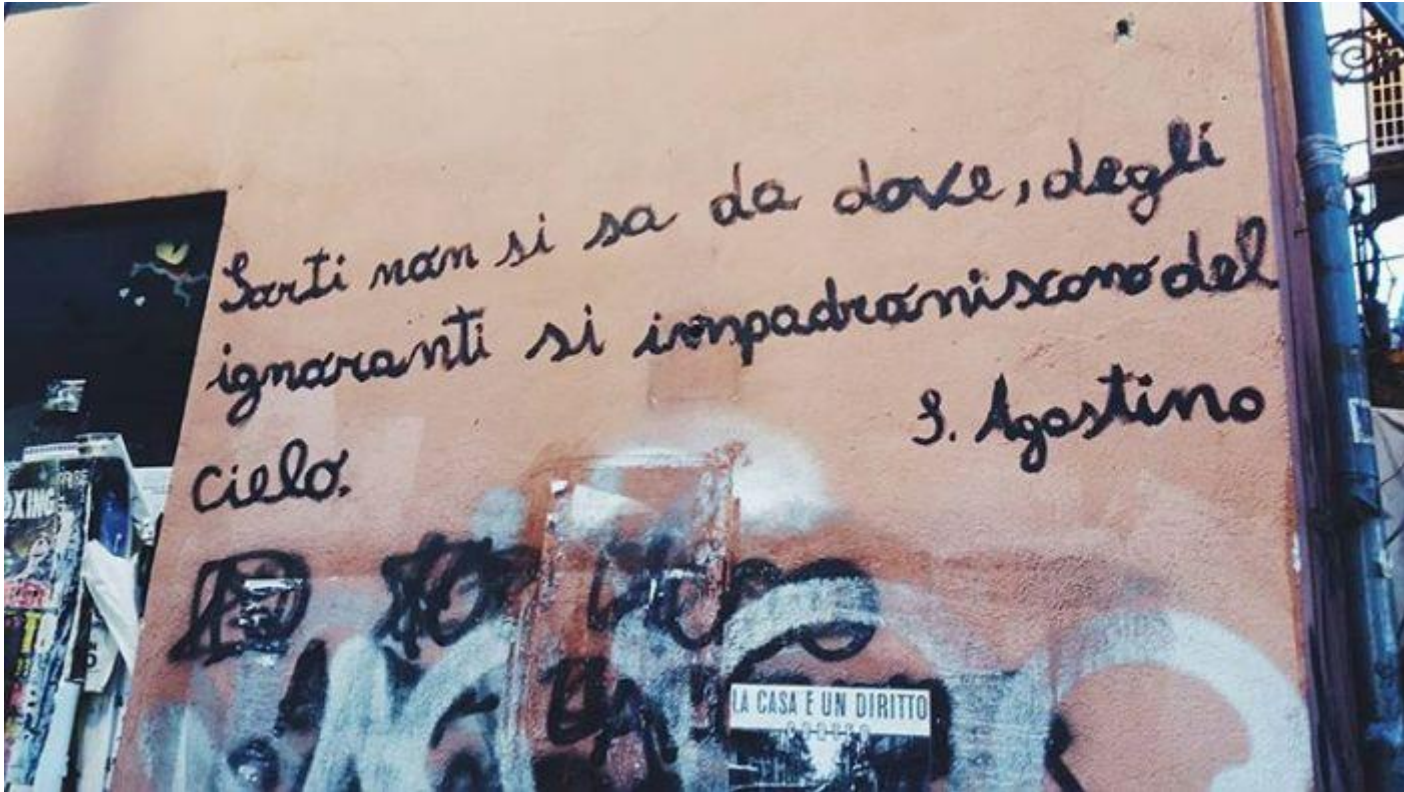 Sorti non si sa da dove, degli
ignoranti si impadroniscono del
cielo.
S. Agostino
LA CASA E UN DIRITTO
OXING